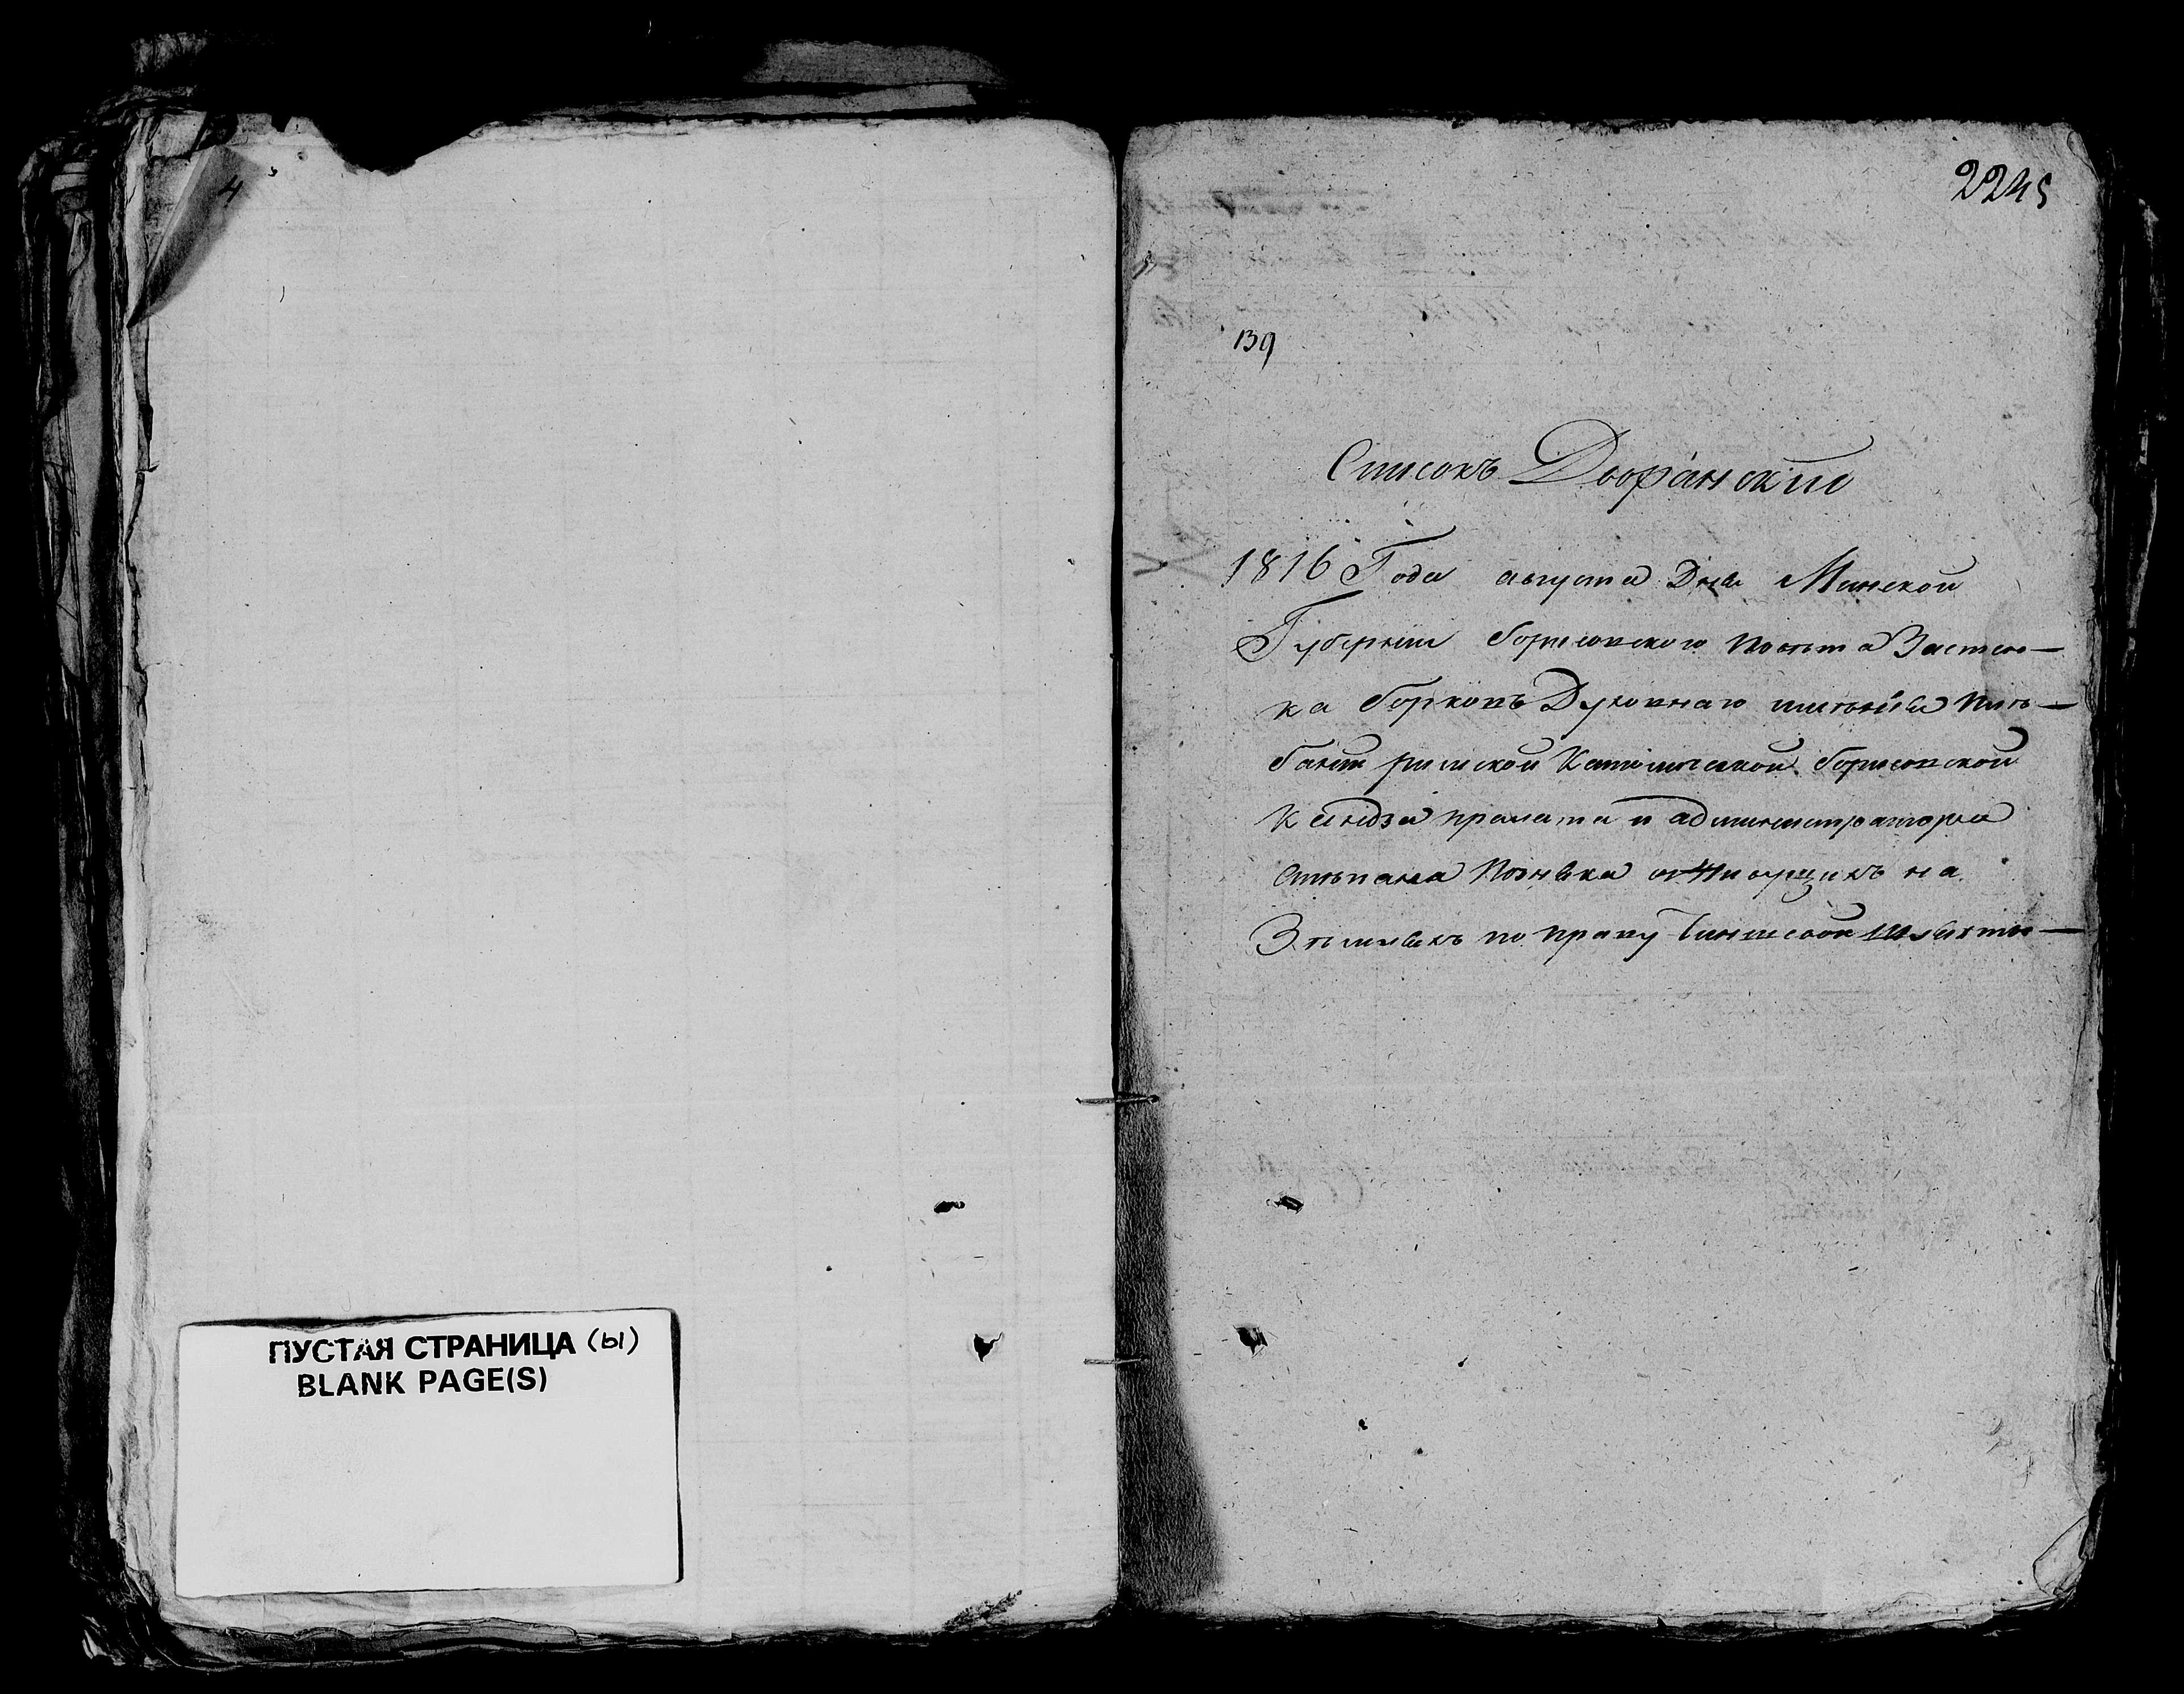 4
ПУСТАЯ СТРАНИЦА (ы)
BLANK PAGE(S)
2245
139
Списокъ Дворянский
1816 Года августа Дня Минской
Губернии борисовского повета Застен—
ка борковъ Духовнаго имѣнiя Плѣ—
банiи римской Католической борисовской
Ксендза прелата и администратора
Стѣпана на
Зѣмляхъ по праву Чиншевой шляхты—